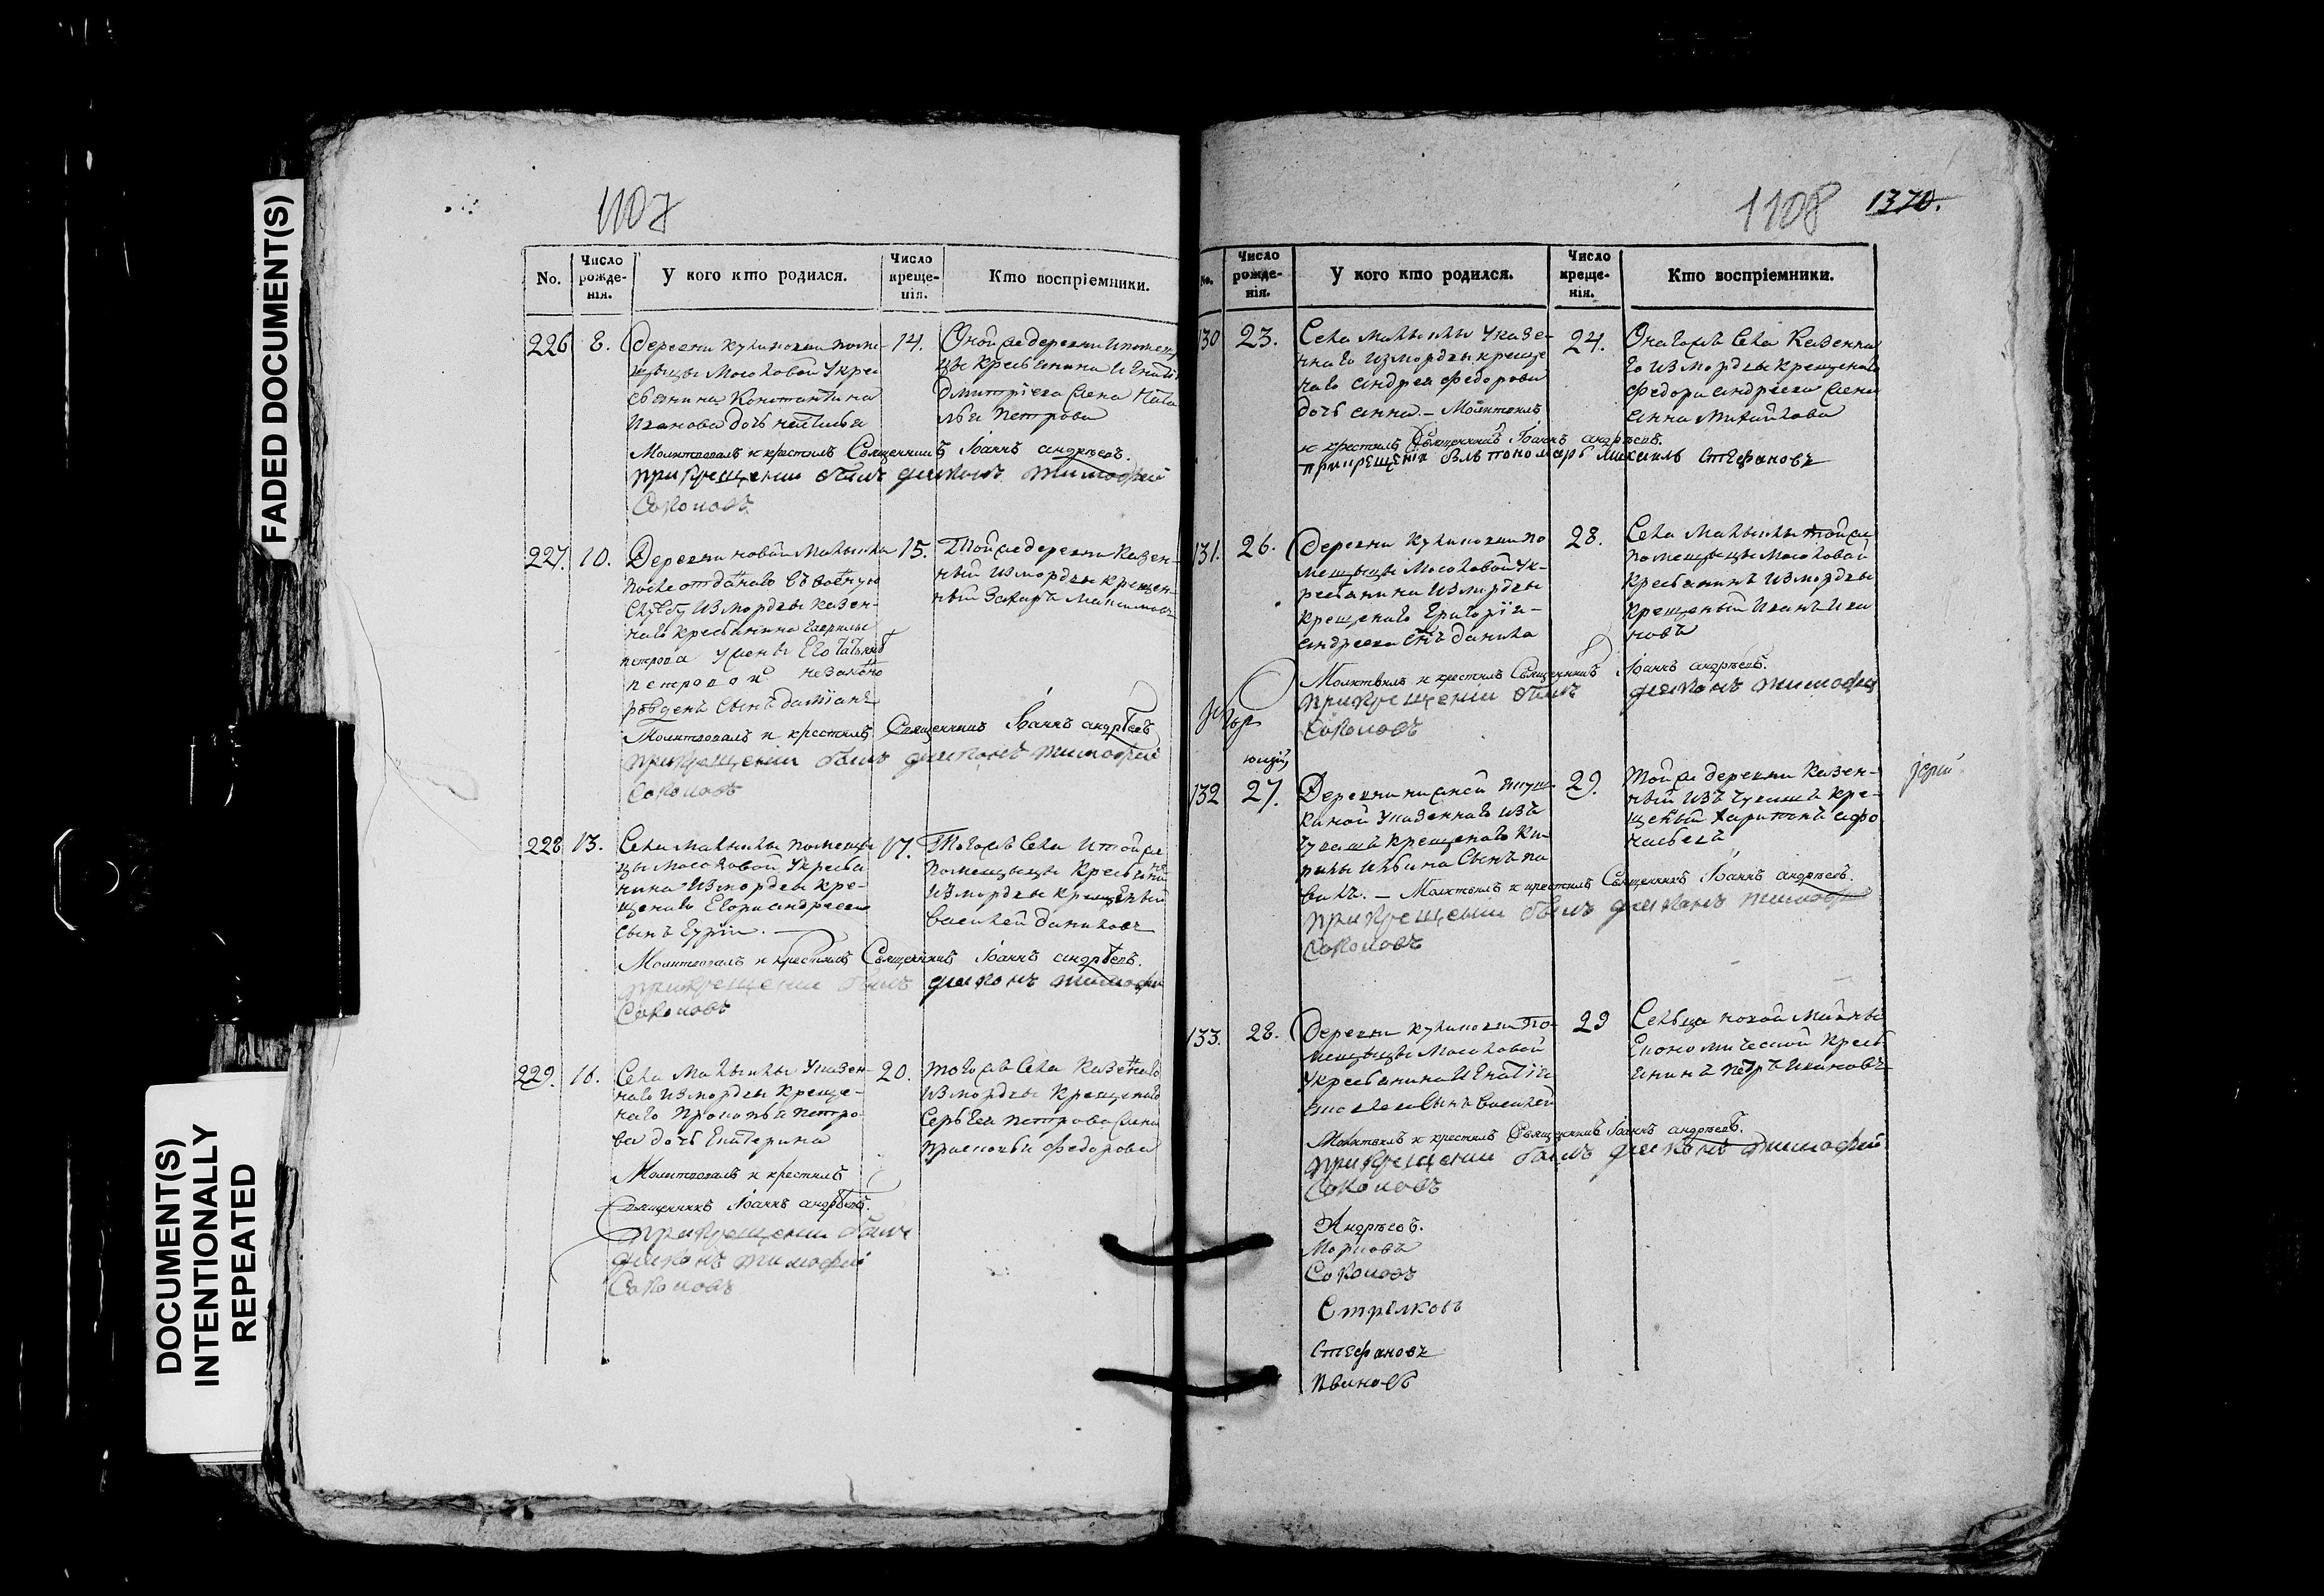 FADED DOCUMENT(S)
DOCUMENT(S)
INTENTIONALLY
REPEATED
1107
No.
Число рожде-нія.
У кого кто родился.
Число креще-нія.
Кто воспріемники.
226
8.
Деревни Кулиновки поме-
щицы Мосоловой у кре
стьянина Константина
Иванова дочь наталья
14.
Оной же деревни и помещ
цы крестьянина Игнатія
Дмитріева жена Ната
лья Петрова
Молитвовалъ и крестилъ Священникъ Іоаннъ андрѣевъ.
при крещении былъ дияконъ тимофей
Соколовъ
227.
10.
Деревни новой Малыклы
после отданаго въ военую
службу из мордвы казен-
наго крестьянина гаврилы
петрова у жены его татьяны
петровой незаконо
рожденъ сынъ даміанъ
15.
Той же деревни казен-
ный из мордвы крещен-
ный Захаръ Максимовъ
Молитвовалъ и крестилъ Священникъ Іоаннъ андрѣевъ
при крещении былъ дияконъ тимофей
Соколовъ
228
13.
Села Малыклы помещи
цы Мосоловой у кресья
нина из мордвы кре-
щенаго Егора андреева
сынъ Гурій.
17.
Тогожъ села и той же
помещицы крестьянинъ
из мордвы крещеный
Василей Даниловъ
Молитвовалъ и крестилъ Священникъ Іоаннъ андрѣевъ.
при крещении былъ дияконъ тимофей
Соколовъ
229.
16.
Села Малыклы у казен-
наго из мордвы креще-
наго Прокопья петро-
ва дочь Екатерина
20.
тогожъ села казенаго
из мордвы крещенаго
Сергея петрова жена
прасковья федорова
Молитвовалъ и крестилъ
Священникъ Іоаннъ андрѣевъ.
при крещении былъ
дияконъ тимофей
Соколовъ
1108
1370.
No.
Число рожде-нія.
У кого кто родился.
Число креще-нія.
Кто воспріемники.
130
23.
Села малыклы у казе-
ннаго из мордвы креще
наго андрея федорова
дочь анна. – Молитвилъ
24.
Онагожъ села казенна
го из мордвы крещенаго
федора андреева жена
анна михайлова
и крестилъ Священникъ Іоаннъ андрѣевъ.
при крещеніи былъ пономарь михаилъ Стефановъ
131.
26.
Деревни Кулиновки по
мещицы Мосоловой у к-
ресьянина из мордвы
крещенаго Григорія
андреева сынъ данила
28.
Села малыклы той же
помещицы Мосоловой
кресьянинъ из мордвы
крещеный Иванъ Ива
новъ
Молитвилъ и крестилъ Священникъ Іоаннъ андрѣевъ.
при крещении былъ дияконъ тимофей
Соколовъ
132
27.
29.
Той же деревни казен-
ный изъ чувашъ кре-
щеный Харитонъ афо
насьевъ
іерей
чувашъ крещенаго Ки-
рилы Ильина сынъ па
велъ. – Молитвилъ и крестилъ Священникъ Іоаннъ андрѣевъ.
при крещении былъ дияконъ тимофей
Соколовъ
133.
28.
Деревни Кулиновки по-
мещицы Мосоловой
у кресьянина Игнатія
сынъ Василей
29
Сельца новой Малыклы
Економической кресь
янинъ петръ Ивановъ
Молитвилъ и крестилъ Священникъ Іоаннъ андрѣевъ.
при крещении былъ дияконъ тимофей
Соколовъ
Андрѣевъ.
Соколовъ
Стрелковъ
Стефановъ
Ивановъ